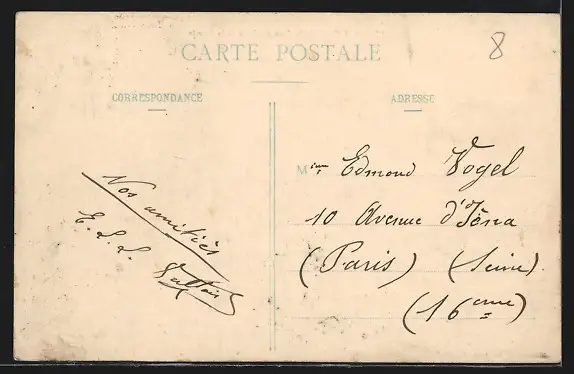 CARTE POSTALE
8
CORRESPONDANCE
ADRESSE
Nos amitiés
E. L. L.
Mme Edmond Vogel
10 Avenue d'Iéna
(Paris) (Seine)
(16eme)